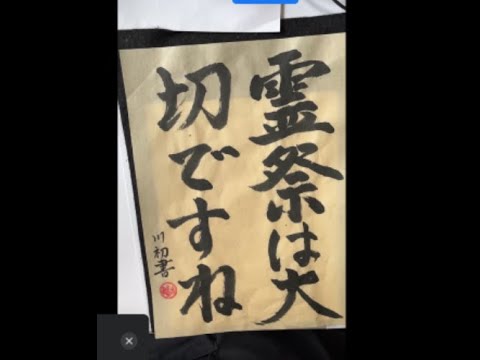 霊祭は大
切ですね
川初書